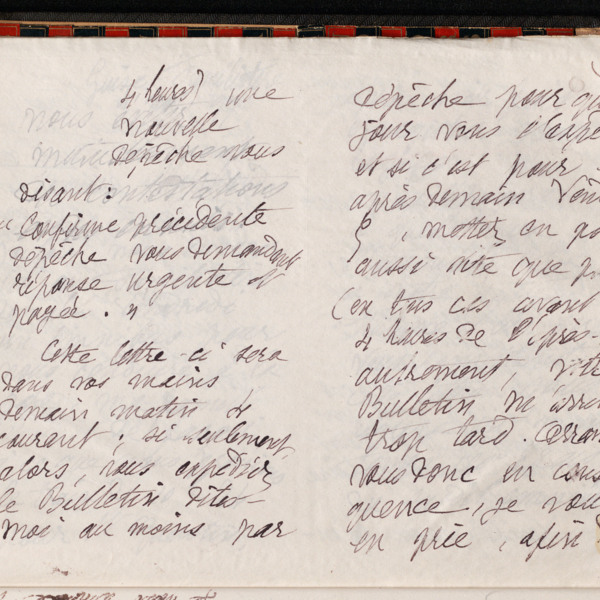 4 heures) une
nouvelle
dépêche vous
disant :
Confirme précédente
dépêche vous demandant
réponse urgente et
payée. "
Cette lettre-ci sera
dans vos mains
demain matin 4
courant ; si seulement
alors, vous expédiez
le Bulletin, dites-
moi au moins par
dépêche pour
jour vous l'
et si c'est pour
après demain
, mettez en
aussi vite que
(en tous cas avant
4 heures de l'après-
autrement,
Bulletin m'
trop tard.
vous donc en
quence, je
en prie, afin